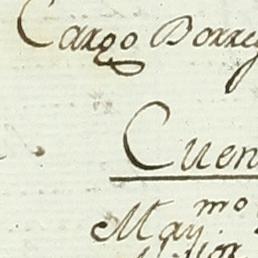 Cargo Borre
Cuen
May.mo